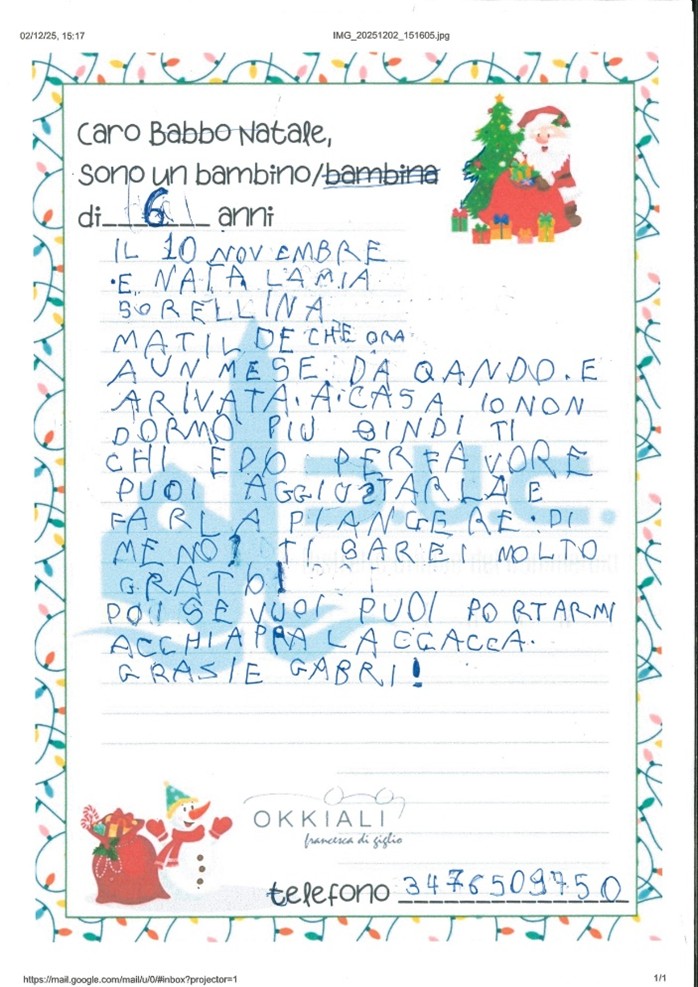 02/12/25, 15:17
IMG_20251202_151605.jpg
Caro Babbo Natale,
Sono un bambino/bambina
di 6 anni
IL 10 NOVEMBRE
E NATA LA MIA
SORELLINA
MATILDE CHE ORA
A UN MESE. DA QANDO. E
ARIVATA. A. CASA IO NON
DORMO PIU QINDI TI
CHIEDO PER FAVORE
PUOI AGGIUSTARLA E
FARLA PIANGERE. DI
MENO! TI SAREI MOLTO
GRATO!
POI SE VUOI PUOI PORTARMI
ACCHIAPPA LA CCACCA.
GRASIE GABRI!
OKKIALI
francesca di giglio
telefono 3476509750
https://mail.google.com/mail/u/0/#inbox?projector=1
1/1